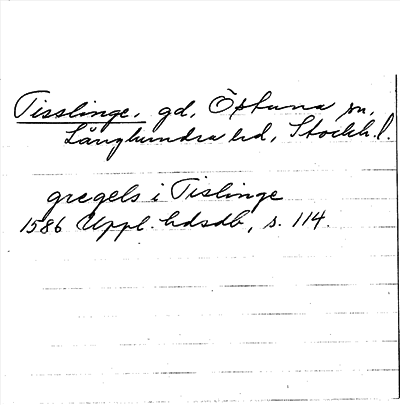 Tisslinge, gd, Östuna sn,
Långhundra hd, Stockh. l.
gregels i Tislinge
1586 Uppl. hdsdb, s. 114.